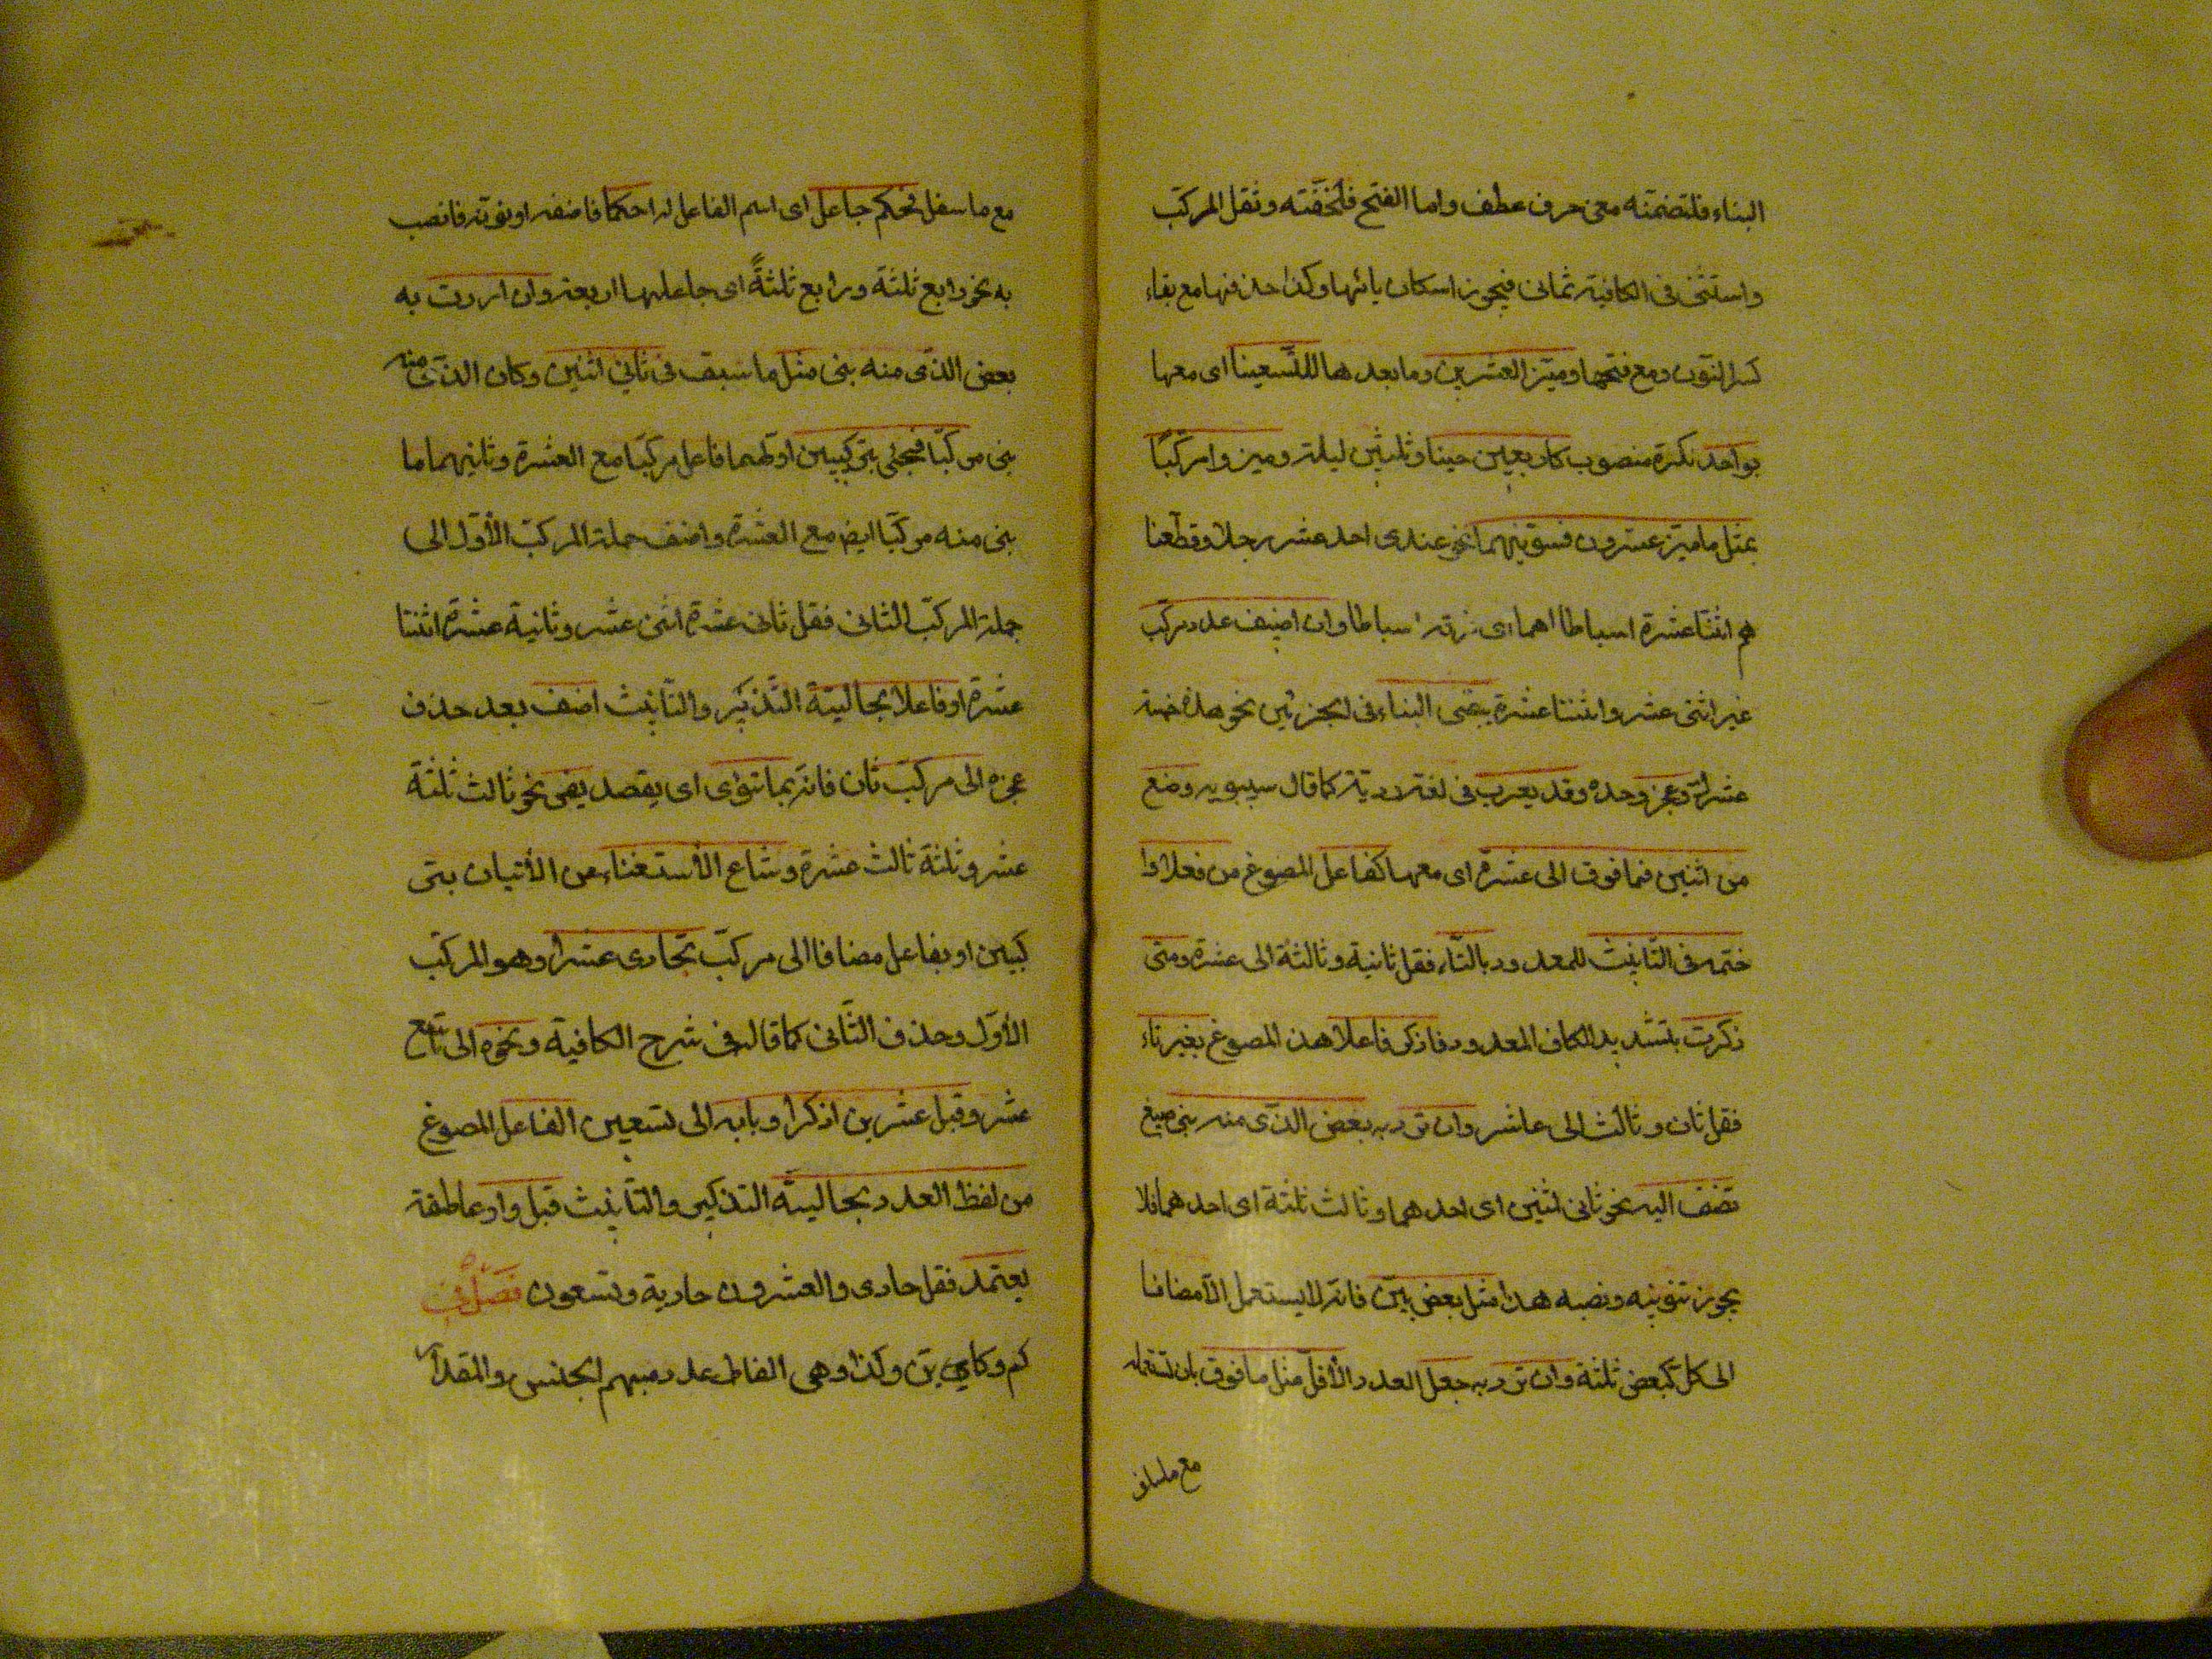 البناء فلتضمنه معنى حرف عطف واما الفتح فلخفّته وثقل المركّب
واستثنى فى الكافية ثمانى فيجوز اسكان يائها وكذا حذفها مع بقاء
كسر النّون ومع فتحها وميّز العشرين وما بعدها للتّسعينا اى معها
بواحد نكرة منصوب كاربعين حينا وثلثين ليلة وميزوا مركّبًا
بمثل ما ميّز عشرون فسوّينهما نحو عندى احد عشر رجلا وقطّعنا
هم اثنتا عشرة اسباطا اى فرقة اسباطا وان اضيف عدد مركّب
غير اثنى عشر واثنتا عشرة يبقى البناء فى الجزئين نحو هذه خمسة
عشرك وعجز وحده وقد يعرب فى لغة رديّة كما قال سيبويه وضع
من اثنين فما فوق الى عشرة اى معها كفاعل المصوغ من فعلا وا
ختمه فى التّانيث للمعدود بالتّاء فقل ثانية وثالثة الى عشرة ومتى
ذكرت بتشديد الكاف المعدود فاذكر فاعلا هذ المصوغ بغير تاء
فقل ثان وثالث الى عاشر وان ترد به بعض الذّى منه بنى صيغ
تضف اليه نحو ثانى اثنين اى احدهما وثالث ثلثة اى احدهما فلا
يجوز تنوينه ونصبه هذا مثل بعض بيّن فانّه لا يستعمل الّا مضافا
الى كلّ كبعض ثلثة وان ترد به جعل العدد الأقلّ مثل ما فوق بان تستعمله
مع ماسفل
مع ماسفل فحكم جاعل اى اسم الفاعل له احكما فاضفه او نوّنه فانصب
به نحو رابع ثلثة ورابع ثلثةً اى جاعلها اربعة وان اردت به
بعض الذّى منه بنى مثل ما سبق فى ثانى اثنين وكان الذّى منه
بنى مركّبا فجئ بتركيبين اولهما فاعل مركّبا مع العشرة وثانيهما ما
بنى منه مركّبا ايض مع العشرة واضف جملة المركّب الأوّل الى
جملة المركّب الثانى فقل ثانى عشرة اثنى عشر وثانية عشرة اثنتا
عشرة او فاعلا بحاليته التّذكير والتّانيث اضف بعد حذف
عجزه الى مركّب ثان فانّه بما تنوى اى يقصد يفى نحو ثالث ثلثة
عشر وثلثة ثالث عشرة وشاع الأستغناء عن الأتيان بتر
كيبين او بفاعل مضافا الى مركّب بحادى عشرا وهو المركّب
الأوّل وحذف الثّانى كما قال فى شرح الكافية ونحوه الى تاسع
عشر وقبل عشرين اذكرا وبابه الى تسعين الفاعل المصوغ
من لفظ العدد بحاليته التذكير والتّانيث قبل واو عاطفة
يعتمد فقل حادى والعشرون حادية وتسعون فصلٌ فى
كم وكايّن وكذا وهى الفاظ عدد مبهم الجنس والمقدار